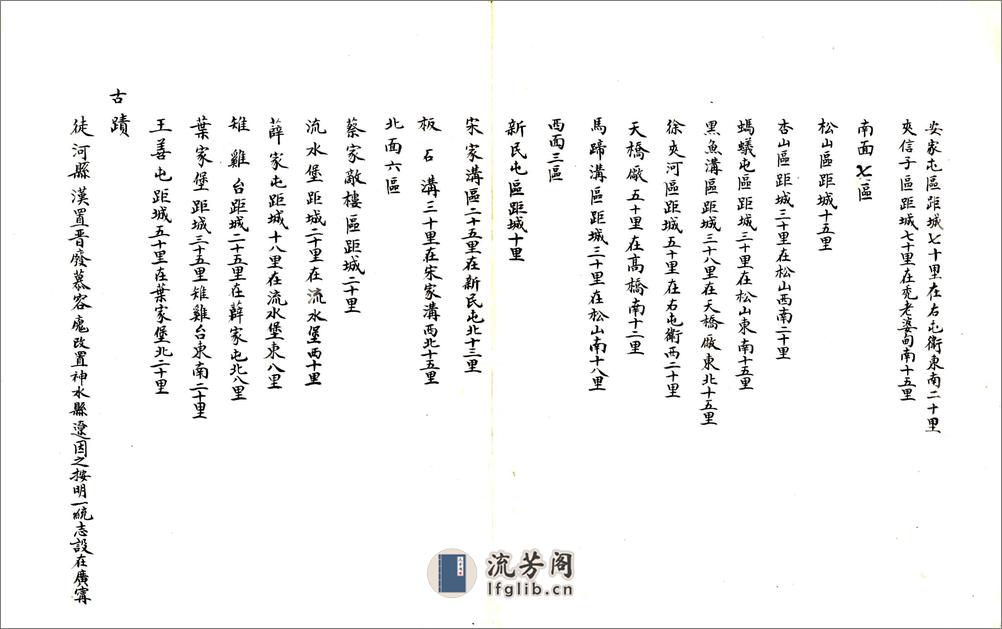 安家屯區距城七十里在右屯衛東南二十里
夾信子區距城七十里在禿老婆甸南十五里
南面七區
松山區距城十五里
杏山區距城三十里在松山西南二十里
螞蟻屯區距城三十里在松山東南十五里
黑魚溝區距城三十八里在天橋廠東北十五里
徐夾河區距城五十里在右屯衛西二十里
天橋廠五十里在高橋南十二里
馬蹄溝區距城三十里在松山南十八里
西面三區
新民屯區距城十里
宋家溝區二十五里在新民屯北十三里
板石溝三十里在宋家溝西北十五里
北面六區
蔡家敵樓區距城二十里
流水堡距城二十里在流水堡西十里
薛家屯距城十八里在流水堡東八里
雉雞台距城二十五里在薛家屯北八里
葉家堡距城三十五里雉雞台東南二十里
王善屯距城五十里在葉家堡北二十里
古蹟
徒河縣漢置晉發慕容廆改置神水縣遼因之按明一統志設在廣寗
流芳阁
lfglib.cn